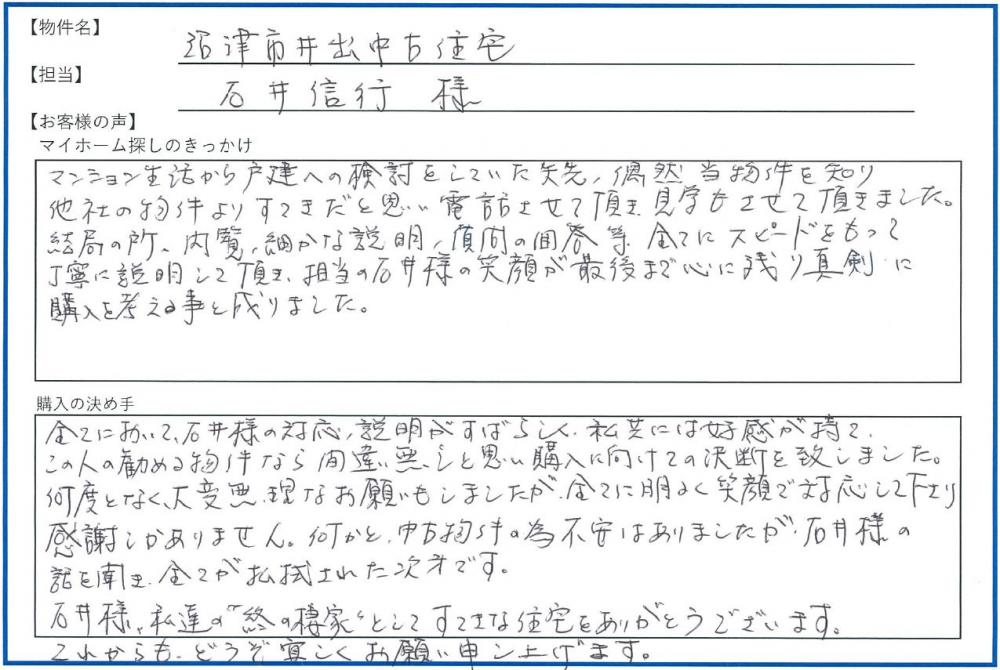 【物件名】
沼津市井出中古住宅
【担当】
石井信行 様
【お客様の声】
マイホーム探しのきっかけ
マンション生活から戸建への検討をしていた矢先、偶然当物件を知り
他社の物件よりすてきだと思い電話させて頂き、見学もさせて頂きました。
結局の所、内覧、細かな説明、質問の回答等、全てにスピードをもって
丁寧に説明して頂き、担当の石井様の笑顔が最後まで心に残り真剣に
購入を考える事と成りました。
購入の決め手
全てにおいて、石井様の対応、説明がすばらしく、私共には好感が持て、
この人の勧める物件なら間違い無いと思い購入に向けての決断を致しました。
何度となく、大変無理なお願いもしましたが、全てに明るく笑顔で対応して下さり
感謝しかありません。何かと、中古物件の為不安はありましたが、石井様の
話を聞き、全てが払拭された次才です。
石井様、私達の"終の棲家"としてすてきな住宅をありがとうございます。
これからも、どうぞ宜しくお願い申し上げます。